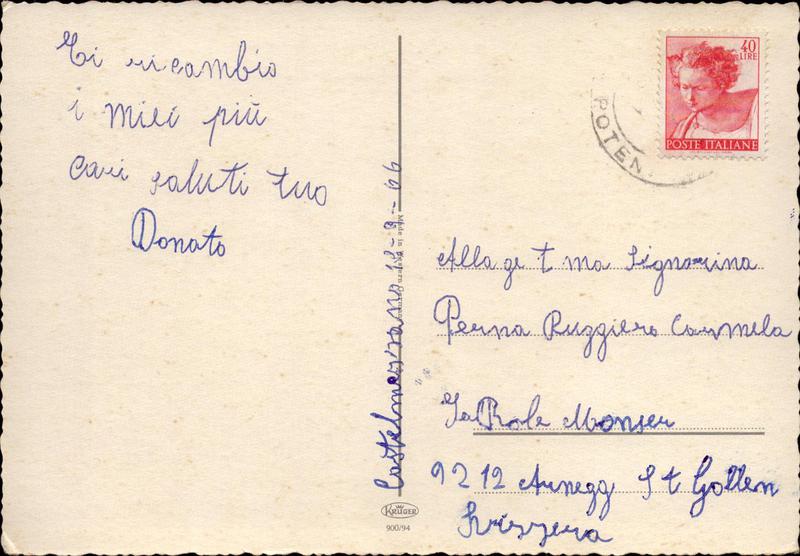 Ti ricambio
i miei più
cari saluti tuo
Donato
Castelmezzano 18-9-66
Made in Western Germany
KRÜGER
900/94
40
LIRE
POSTE ITALIANE
POTEN
Alla ge t ma Signorina
Perna Ruggiero Carmela
9212 Arnegg St Gollen
Svizzera